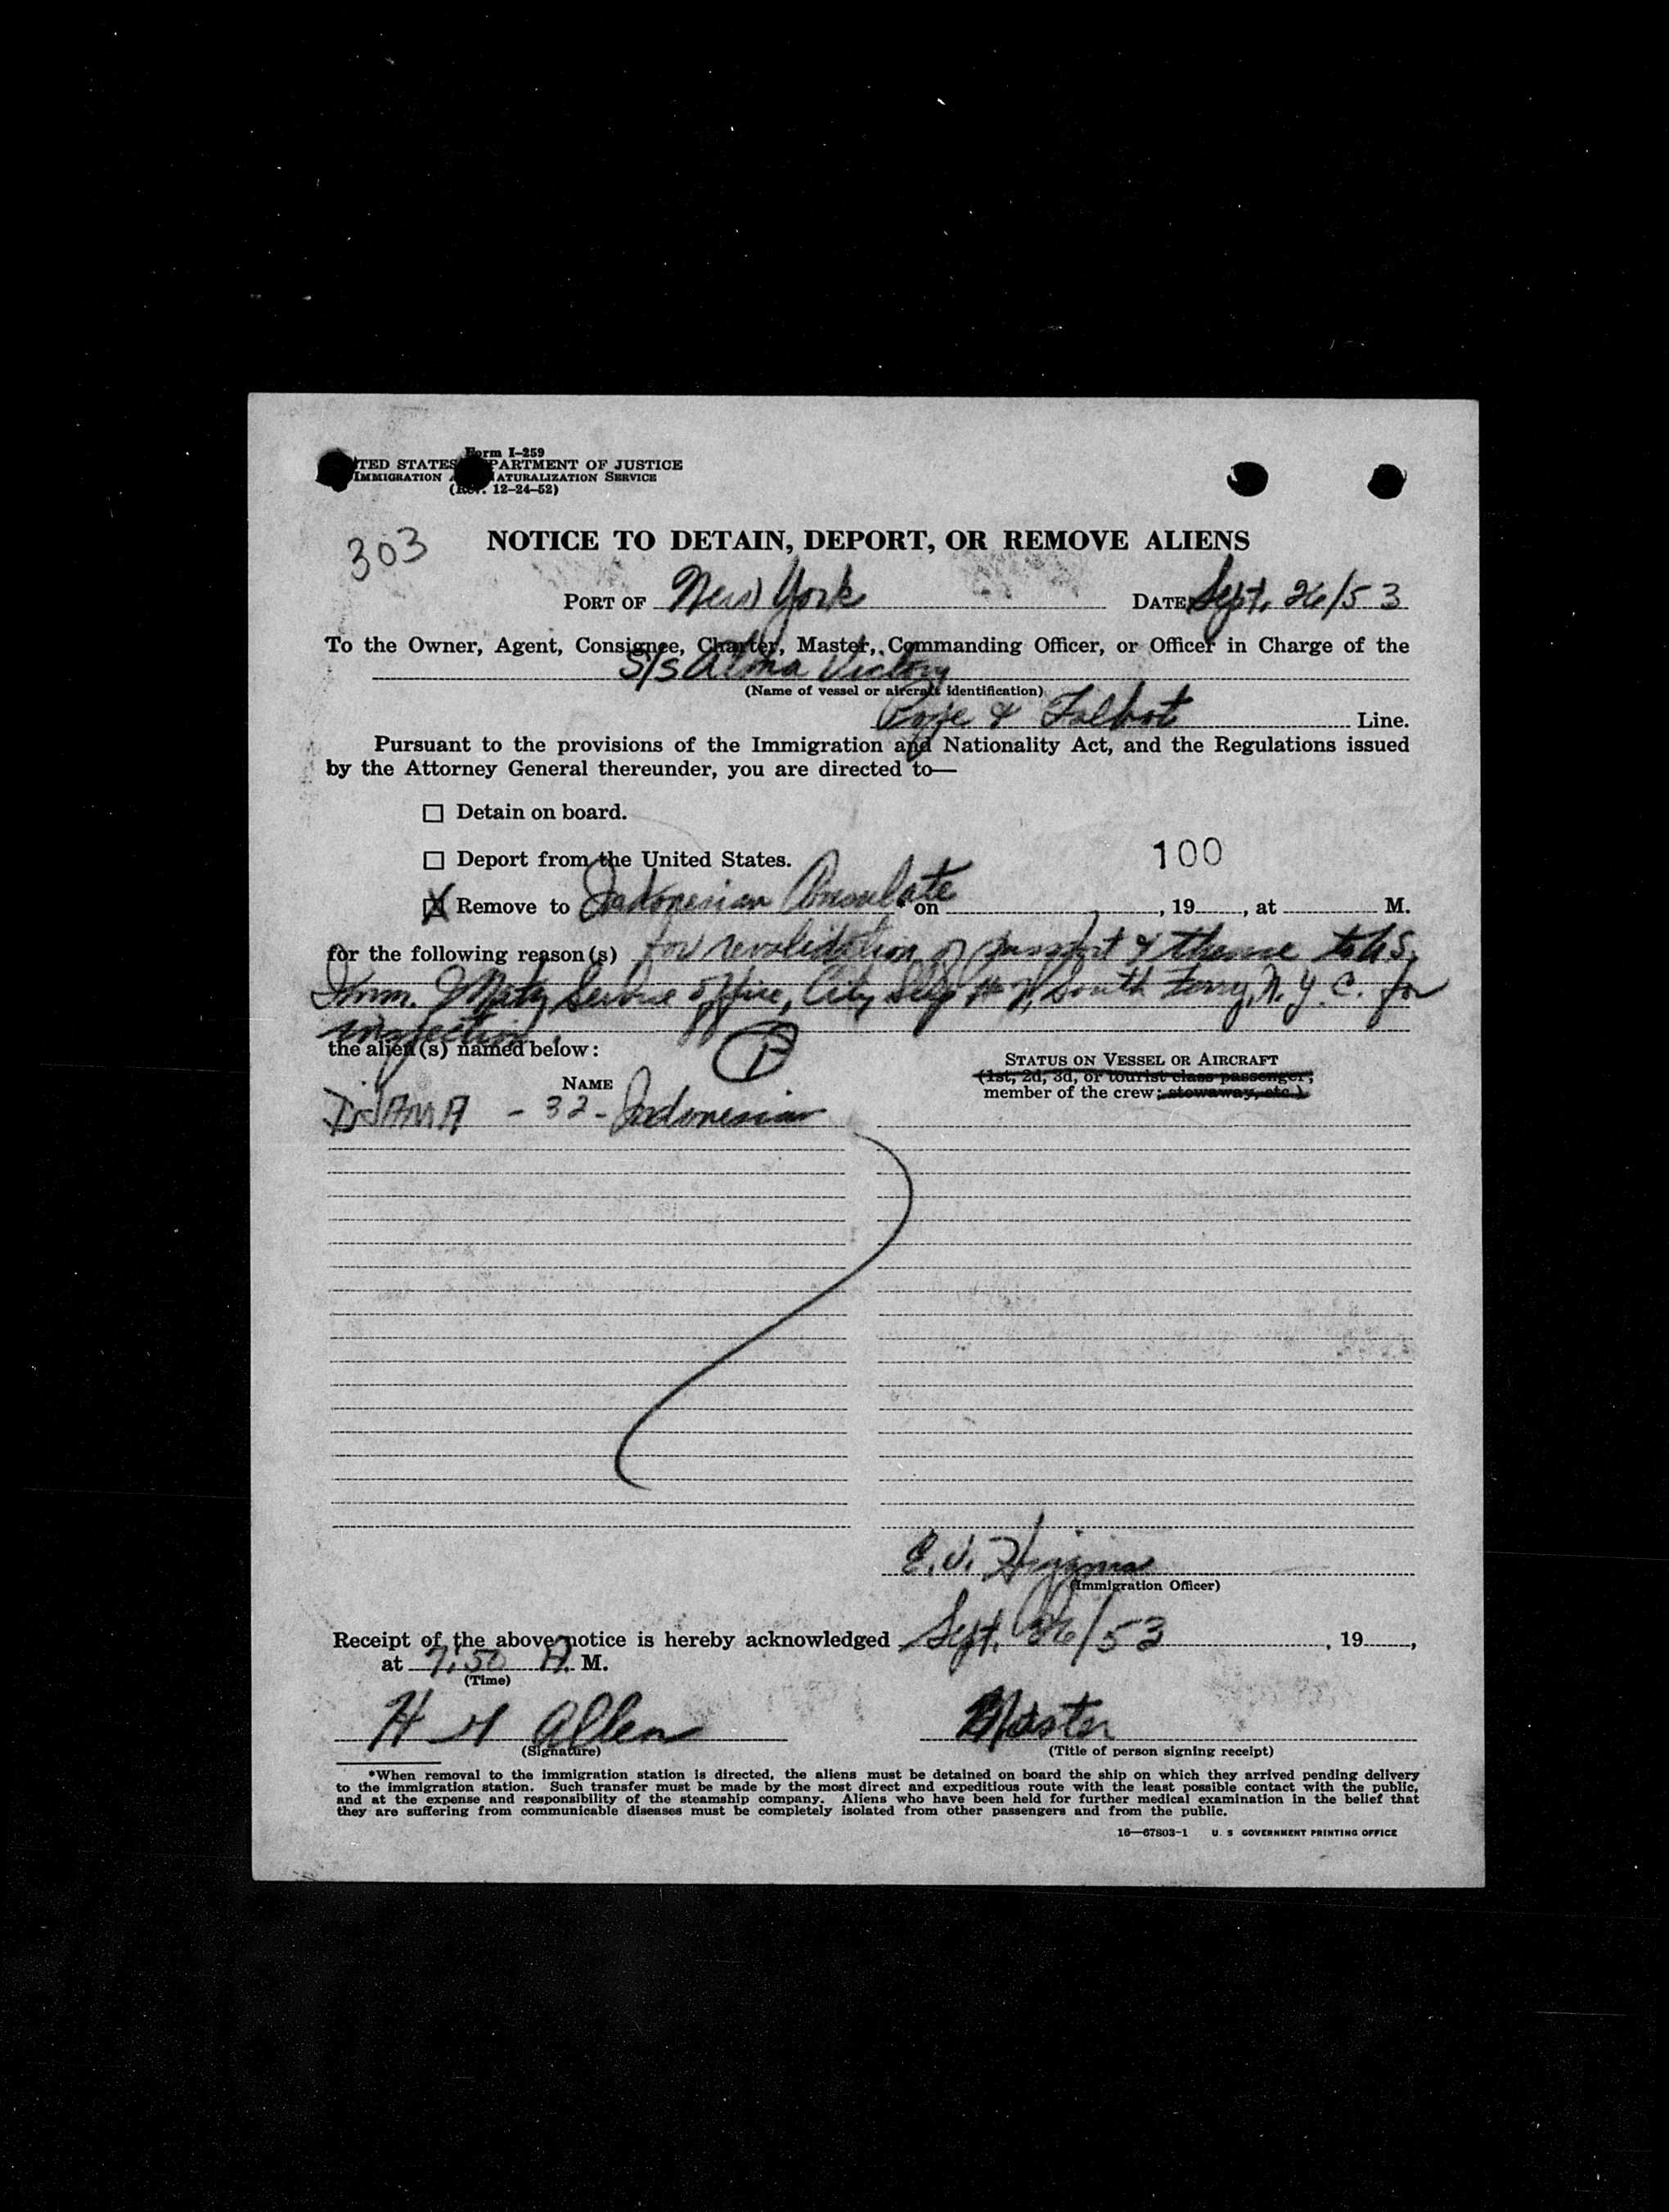 Form I-259
TED STATES PARTMENT OF JUSTICE
IMMIGRATION ATURALIZATION SERVICE
(Rev. 12-24-52)
303
NOTICE TO DETAIN, DEPORT, OR REMOVE ALIENS
PORT OF New York DATE Sept. 26/53
To the Owner, Agent, Consignee, Charter, Master, Commanding Officer, or Officer in Charge of the
S/S Alma Victory
(Name of vessel or aircraft identification)
Pope & Talbot Line.
Pursuant to the provisions of the Immigration and Nationality Act, and the Regulations issued
by the Attorney General thereunder, you are directed to—
Detain on board.
Deport from the United States.
100
X Remove to Indonesian Consulate * on , 19 , at M.
for the following reason(s) for revalidation of passport & thence to U.S.
Imm. & Natz Service office, City Slip # South Ferry, N.Y.C. for
inspection.
the alien(s) named below:
1
NAME
STATUS ON VESSEL OR AIRCRAFT
(1st, 2d, 3d, or tourist class passenger,
member of the crew; stowaway, etc.)
DJAMA - 32 - Indonesian
E.J. Higgins
(Immigration Officer)
Receipt of the above notice is hereby acknowledged Sept. 26/53 , 19 ,
at 7:50 A. M.
(Time)
H H Allen Master
(Signature) (Title of person signing receipt)
*When removal to the immigration station is directed, the aliens must be detained on board the ship on which they arrived pending delivery
to the immigration station. Such transfer must be made by the most direct and expeditious route with the least possible contact with the public,
and at the expense and responsibility of the steamship company. Aliens who have been held for further medical examination in the belief that
they are suffering from communicable diseases must be completely isolated from other passengers and from the public.
16—67803-1 U. S GOVERNMENT PRINTING OFFICE